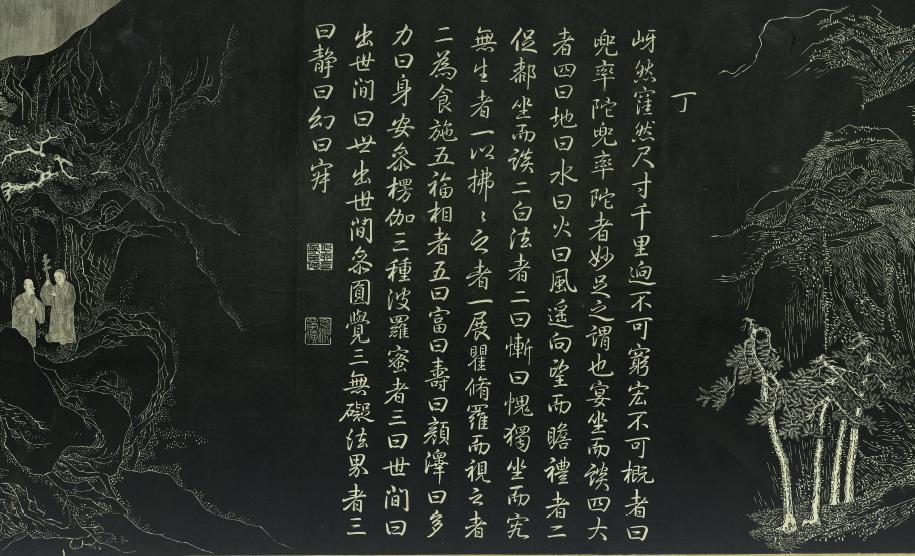 丁
岈然窪然尺寸千里逈不可窮宏不可概者曰
兜率陀兜率陀者妙足之謂也宴坐而談四大
者四曰地曰水曰火曰風遥向望而瞻禮者二
促鄰坐而談二白法者二曰慚曰愧獨坐而究
無生者一以拂〻之者一展瞿脩羅而視之者
二為食施五福相者五曰富曰壽曰顔澤曰多
力曰身安叅楞伽三種波羅蜜者三曰世間曰
出世間曰世出世間叅圓覺三無礙法界者三
曰静曰幻曰寂